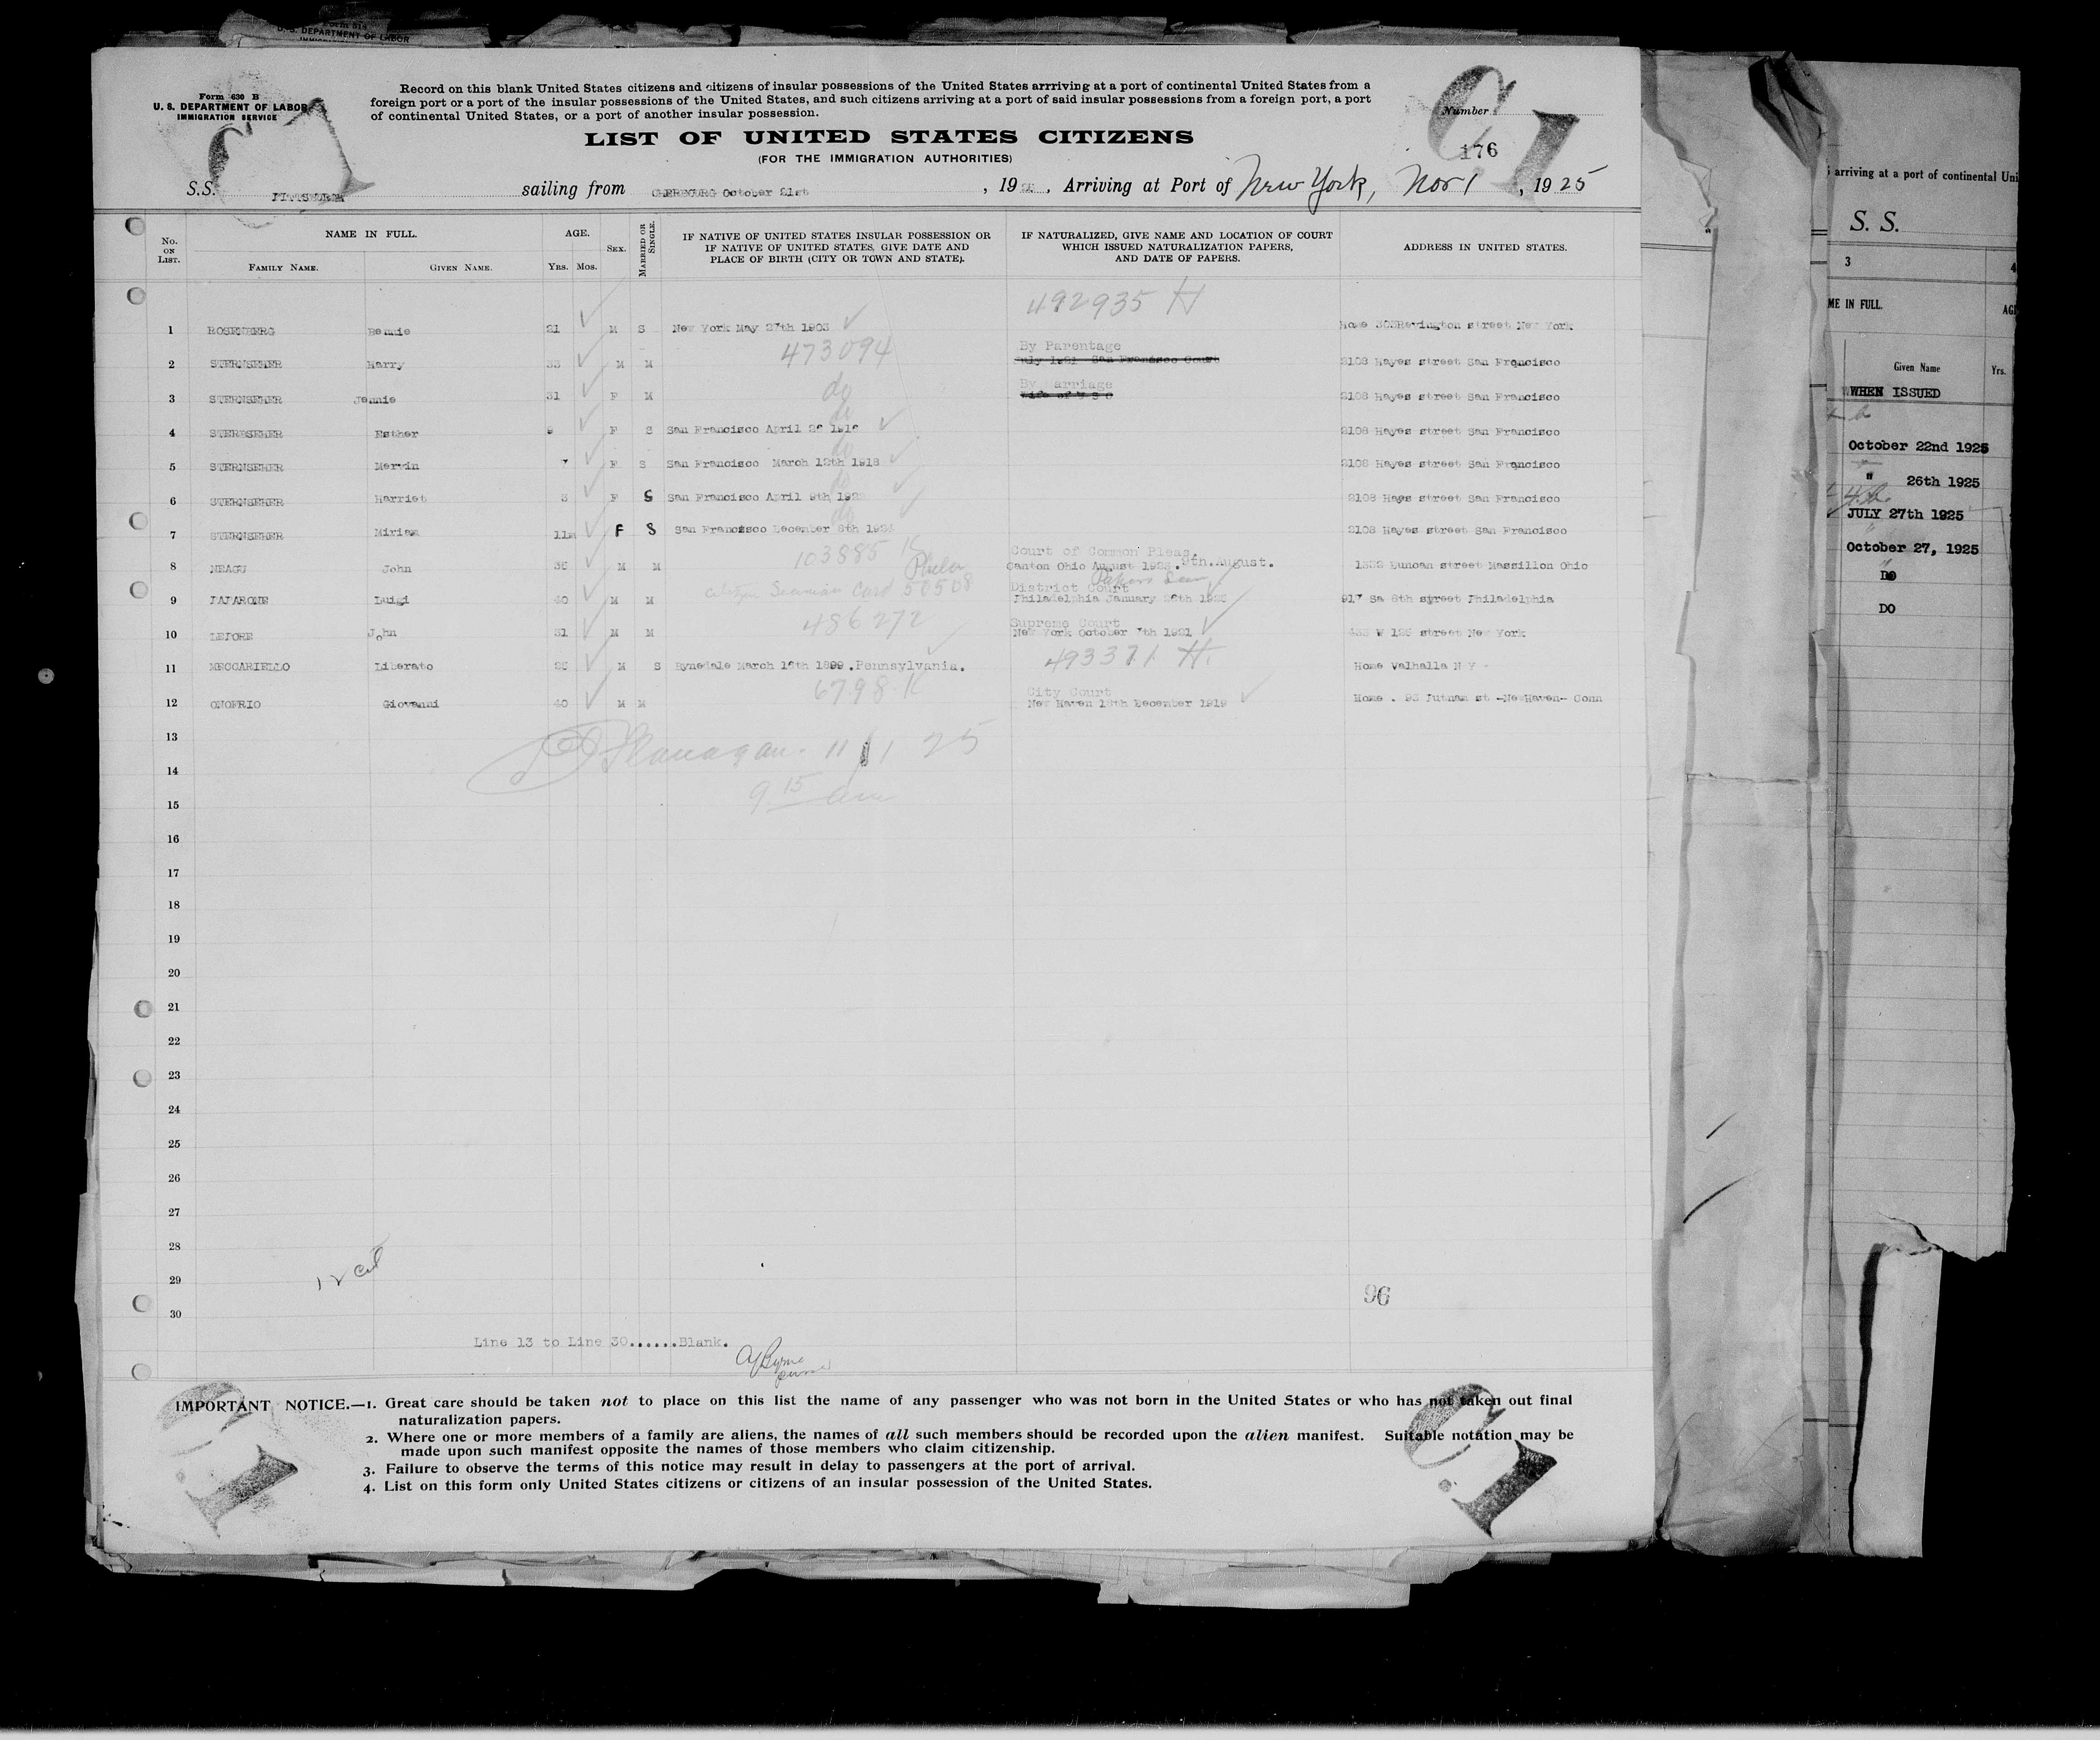 U. S. DEPARTMENT OF LABOR
Form 630 B
U. S. DEPARTMENT OF LABOR
IMMIGRATION SERVICE
Record on this blank United States citizens and citizens of insular possessions of the United States arrriving at a port of continental United States from a
foreign port or a port of the insular possessions of the United States, and such citizens arriving at a port of said insular possessions from a foreign port, a port
of continental United States, or a port of another insular possession.
Number
176
C 1
C 1
LIST OF UNITED STATES CITIZENS
(FOR THE IMMIGRATION AUTHORITIES)
S.S. PITTSBURGH sailing from CHERBOURG October 21st , 19 , Arriving at Port of New York, Nov 1 , 1925
No. ON LIST. NAME IN FULL. AGE. SEX. MARRIED OR SINGLE. IF NATIVE OF UNITED STATES INSULAR POSSESSION OR IF NATIVE OF UNITED STATES, GIVE DATE AND PLACE OF BIRTH (CITY OR TOWN AND STATE). IF NATURALIZED, GIVE NAME AND LOCATION OF COURT WHICH ISSUED NATURALIZATION PAPERS, AND DATE OF PAPERS. ADDRESS IN UNITED STATES.
FAMILY NAME. GIVEN NAME. YRS. MOS.
492935 H
1 ROSENBERG Bennie 21 M S New York May 27th 1903 Home 302Revington street New York
473094 By Parentage
2 STERNSEHER Harry 33 M M July 1921 San Francisco Court 2108 Hayes street San Francisco
do By Marriage
3 STERNSEHER Jennie 31 F M Wife of U S C 2108 Hayes street San Francisco
do
4 STERNSEHER Esther 9 F S San Francisco April 26 1916 2108 Hayes street San Francisco
do
5 STERNSEHER Mervin 7 F S San Francisco March 12th 1918 2108 Hayes street San Francisco
do
6 STERNSEHER Harriet 3 F S San Francisco April 9th 192 2108 Hays street San Francisco
do
7 STERNSEHER Miriam 11m F S San Francisco December 8th 1924 2108 Hayes street San Francisco
103885 K Court of Common Pleas.
8 NEAGU John 36 M M Phelan Canton Ohio August 1923.9th.August. 1332 Duncan street Massillon Ohio
Citizen Seaman Card 50508 Papers Seen District Court
9 PAPARONE Luigi 40 M M Philadelphia January 28th 917 So 8th street Philadelphia
486272 Supreme Court
10 LEPORE John 31 M M New York October 7th 1921 433 W 125 street New York
493371 H.
11 MECCARIELLO Liberato 26 M S Rynedale March 16th 1899.Pennsylvania. Home Valhalla N Y
6798 K City Court
12 ONOFRIO Giovanni 40 M M New Haven 18th December 1919 Home . 93 Putnam st -NewHaven- Conn
13
Flanagan. 11/1 25
14
9.15 am
15
16
17
18
19
20
21
22
23
24
25
26
27
28
12 cit
29
96
30
Line 13 to Line 30......Blank.
A J Byrne
C 1
C 1
IMPORTANT NOTICE.—1. Great care should be taken not to place on this list the name of any passenger who was not born in the United States or who has not taken out final
naturalization papers.
2. Where one or more members of a family are aliens, the names of all such members should be recorded upon the alien manifest. Suitable notation may be
made upon such manifest opposite the names of those members who claim citizenship.
3. Failure to observe the terms of this notice may result in delay to passengers at the port of arrival.
4. List on this form only United States citizens or citizens of an insular possession of the United States.
arriving at a port of continental Uni
S. S.
3 4
ME IN FULL. AGE
Given Name Yrs.
WHEN ISSUED
October 22nd 1925
" 26th 1925
JULY 27th 1925
October 27, 1925
DO
DO